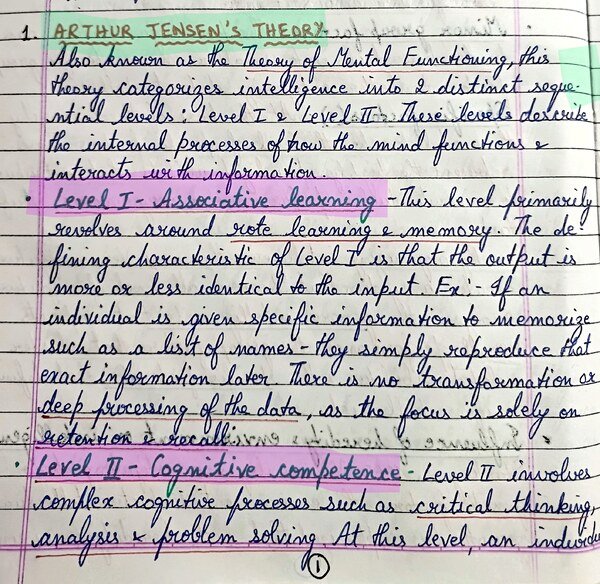 1. ARTHUR JENSEN'S THEORY
Also known as the Theory of Mental Functioning, this
theory categorizes intelligence into 2 distinct seque-
ntial levels: Level I & Level II. These levels describe
the internal processes of how the mind functions &
interacts with information.
• Level I - Associative learning - This level primarily
revolves around rote learning & memory. The de-
fining characteristic of Level I is that the output is
more or less identical to the input. Ex:- If an
individual is given specific information to memorize
such as a list of names - they simply reproduce that
exact information later There is no transformation or
deep processing of the data, as the focus is solely on
retention & recall.
• Level II - Cognitive competence - Level II involves
complex cognitive processes such as critical thinking,
analysis & problem solving. At this level, an individu
1